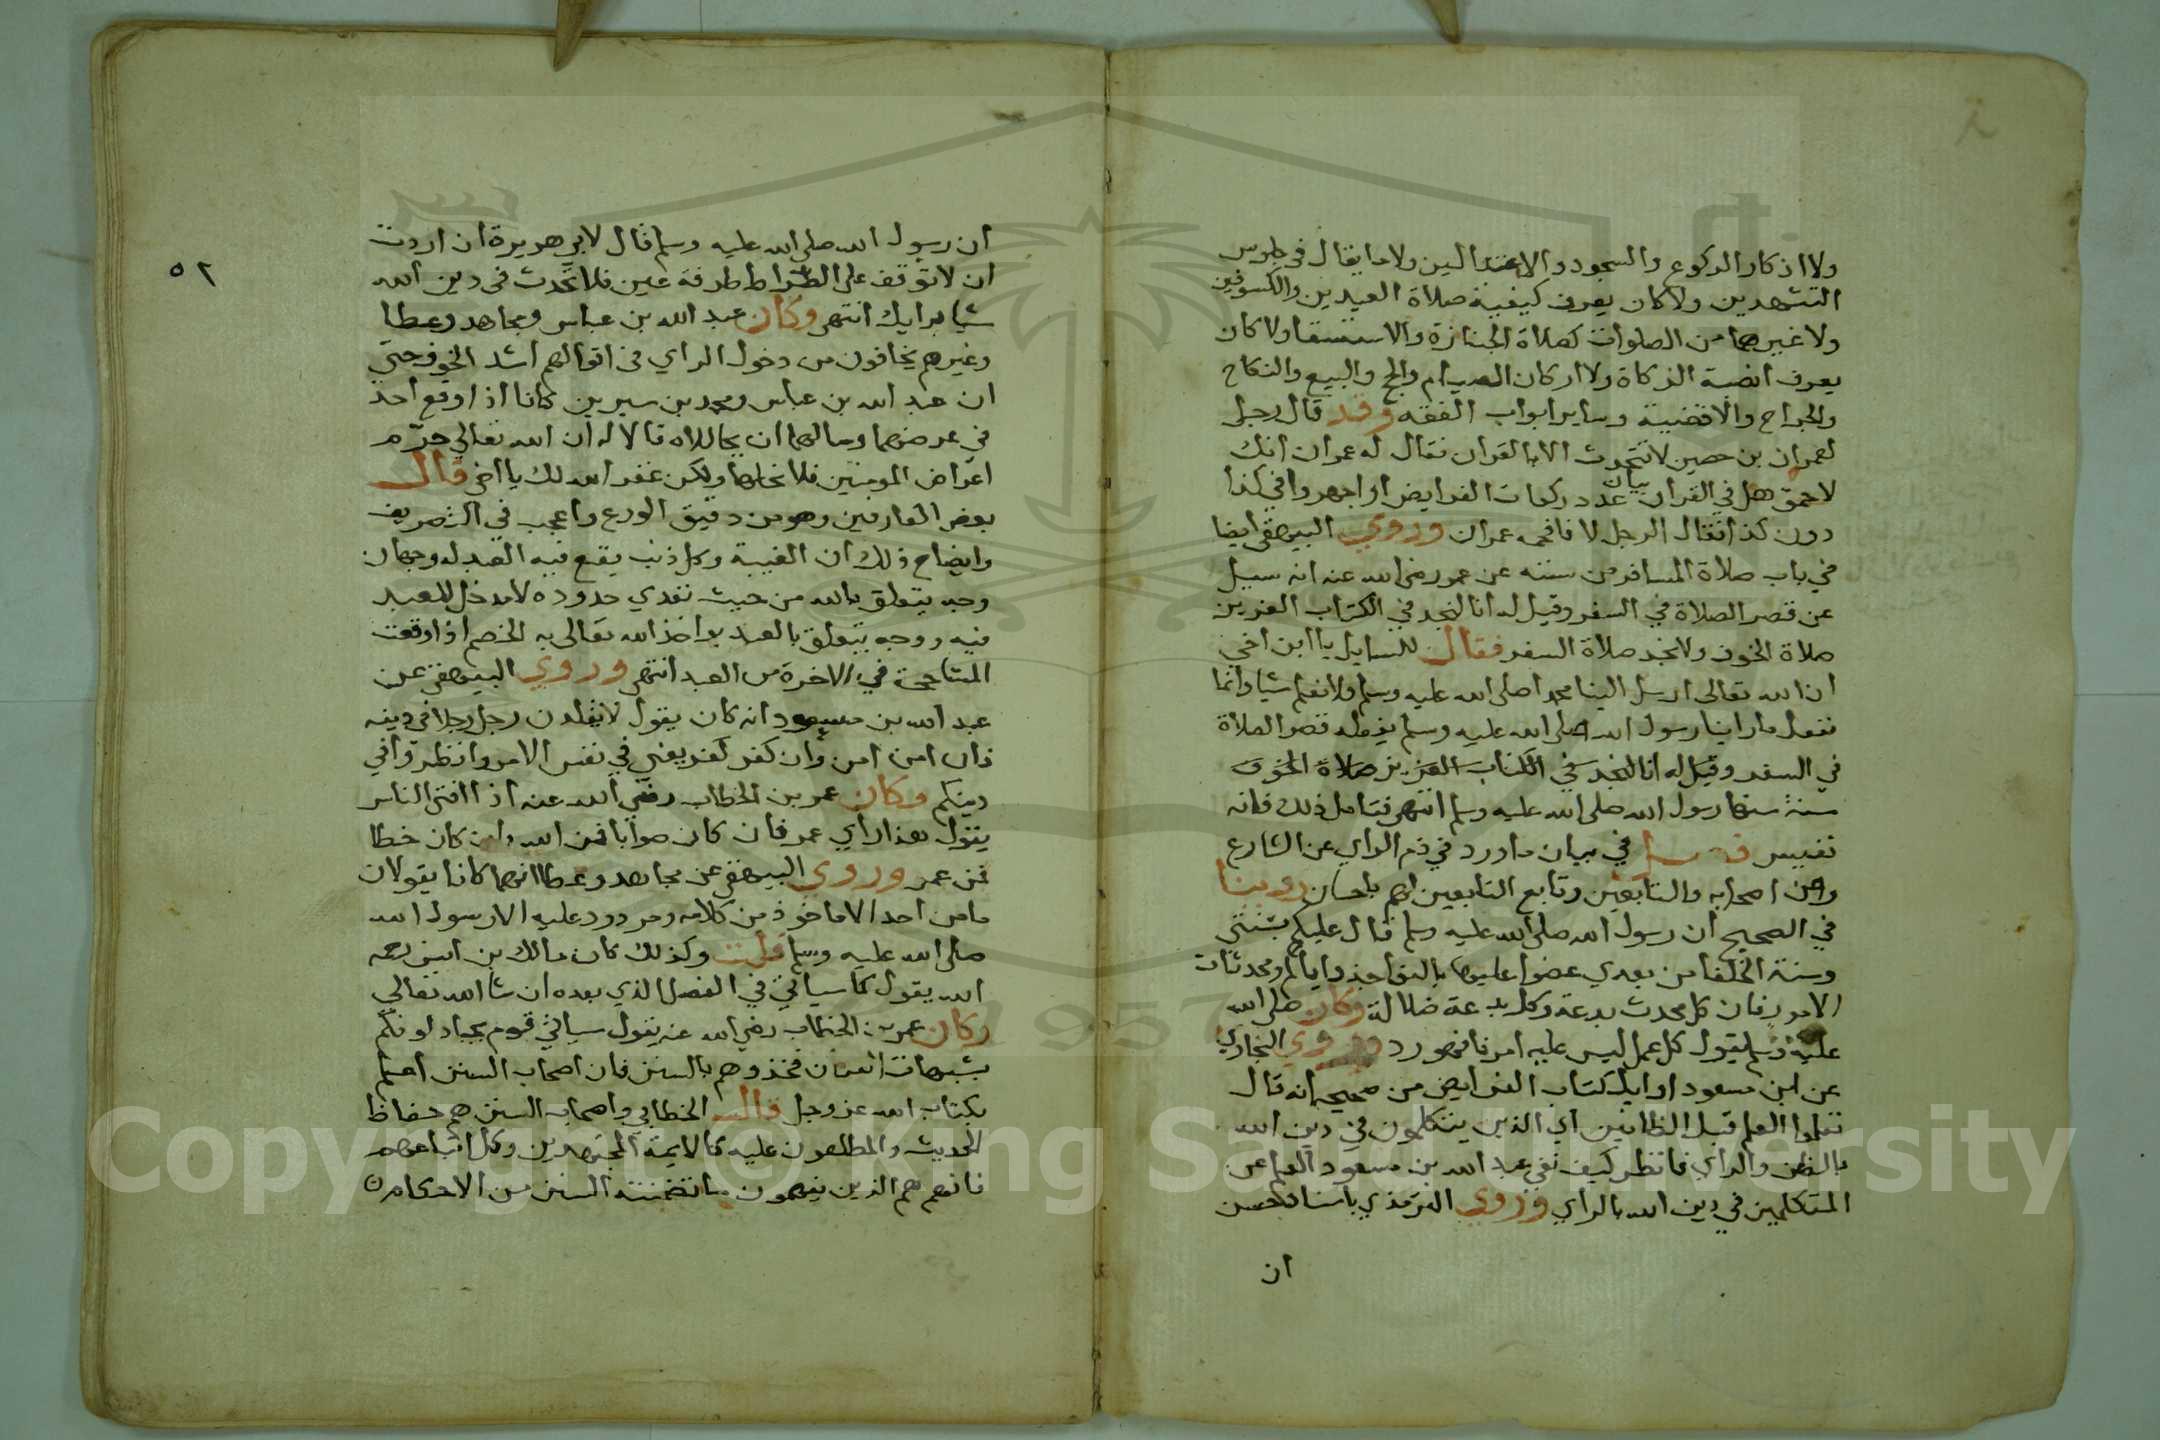 ولا اذكار الركوع والسجود والاعتدالين ولا ما يقال في جلوس
التشهدين ولا كان يعرف كيفية صلاة العيدين والكسوفين
ولا غيرهما من الصلوات كصلاة الجنازة والاستسقا ولا كان
يعرف انصبة الزكاة ولا اركان الصيام والحج والبيع والنكاح
والجراح والاقضية وساير ابواب الفقه وقد قال رجل
لعمران بن حصين لا تتحدث الا بالقران فقال له عمران انك
لاحمق هل في القران بيان عدد ركعات الفرايض او اجهروا في كذا
دون كذا فقال الرجل لا فافحمه عمران وروي البيهقي ايضا
في باب صلاة المسافر من سننه عن عمر رضي الله عنه انه سيل
عن قصر الصلاة في السفر وقيل له انا لنجد في الكتاب العزيز
صلاة الخوف ولا نجد صلاة السفر فقال للسايل يا ابن اخي
ان الله تعالى ارسل الينا محمدا صلى الله عليه وسلم ولا نعلم شيا وانما
نفعل ما راينا رسول الله صلى الله عليه وسلم يفعله قصر الصلاة
في السفر وقيل له انا لنجد في الكتاب العزيز صلاة الخوف
سنة سنها رسول الله صلى الله عليه وسلم انتهى فتامل ذلك فانه
نفيس فصل في بيان ما ورد في ذم الراي عن الشارع
وعن اصحابه والتابعين وتابع التابعين لهم باحسان روينا
في الصحيح ان رسول الله صلى الله عليه وسلم قال عليكم بسنتي
وسنة الخلفا من بعدي عضوا عليها بالنواجذ واياكم ومحدثات
الامور فان كل محدث بدعة وكل بدعة ضلالة وكان صلى الله
عليه وسلم يقول كل عمل ليس عليه امرنا فهو رد وروي البخاري
عن ابن مسعود اوايل كتاب الفرايض من صحيحه انه قال
تعلموا العلم قبل الظانين اي الذين يتكلمون في دين الله
بالظن والراي فانظر كيف نفي عبد الله بن مسعود العلم عن
المتكلمين في دين الله بالراي وروي الترمذي باسناد حسن
ان
٥٢
ان رسول الله صلى الله عليه وسلم قال لابي هريرة ان اردت
ان لا توقف على الصراط طرفة عين فلا تحدث في دين الله
شيا برايك انتهى وكان عبد الله بن عباس ومجاهد وعطا
وغيرهم يخافون من دخول الراي في اقوالهم اشد الخوف حتى
ان عبد الله بن عباس ومحمد بن سيرين كانا اذا وقع احد
في عرضهما وسالهما ان يحاللاه قالا له ان الله تعالى حرم
اعراض المومنين فلا نحلها ولكن غفر الله لك يا اخي قال
بعض العارفين وهو من دقيق الورع واعجب في التصريف
وايضاح ذلك ان الغيبة وكل ذنب يقع فيه العبد له وجهان
وجه يتعلق بالله من حيث تعدي حدوده لا مدخل للعبد
فيه ووجه يتعلق بالعبد يواخذ الله تعالى به الخصم اذا وقعت
المشاححة في الاخرة من العبد انتهى وروي البيهقي عن
عبد الله بن مسعود انه كان يقول لا يقلدن رجل رجلا في دينه
فان امن امن وان كفر كفر يعني في نفس الامر وانظروا في
دينكم وكان عمر بن الخطاب رضي الله عنه اذا افتى الناس
يقول هذا راي عمر فان كان صوابا فمن الله وان كان خطا
فمن عمر وروي البيهقي عن مجاهد وعطا انهما كانا يقولان
ما من احد الا ماخوذ من كلامه ومردود عليه الا رسول الله
صلى الله عليه وسلم قلت وكذلك كان مالك بن انس رحمه
الله يقول كما سياتي في الفصل الذي بعده ان شا الله تعالى
وكان عمر بن الخطاب رضي الله عنه يقول سياتي قوم يجادلونكم
بشبهات القران فخذوهم بالسنن فان اصحاب السنن اعلم
بكتاب الله عز وجل قال الخطابي واصحاب السنن هم حفاظ
الحديث والمطلعون عليه كالايمة المجتهدين وكل اتباعهم
فانهم هم الذين يفهمون ما تضمنته السنن من الاحكام
Copyright © King Saud University
1957